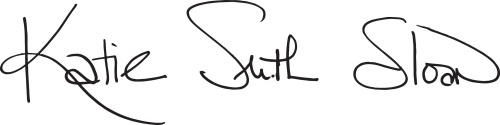 Katie Smith Sloan